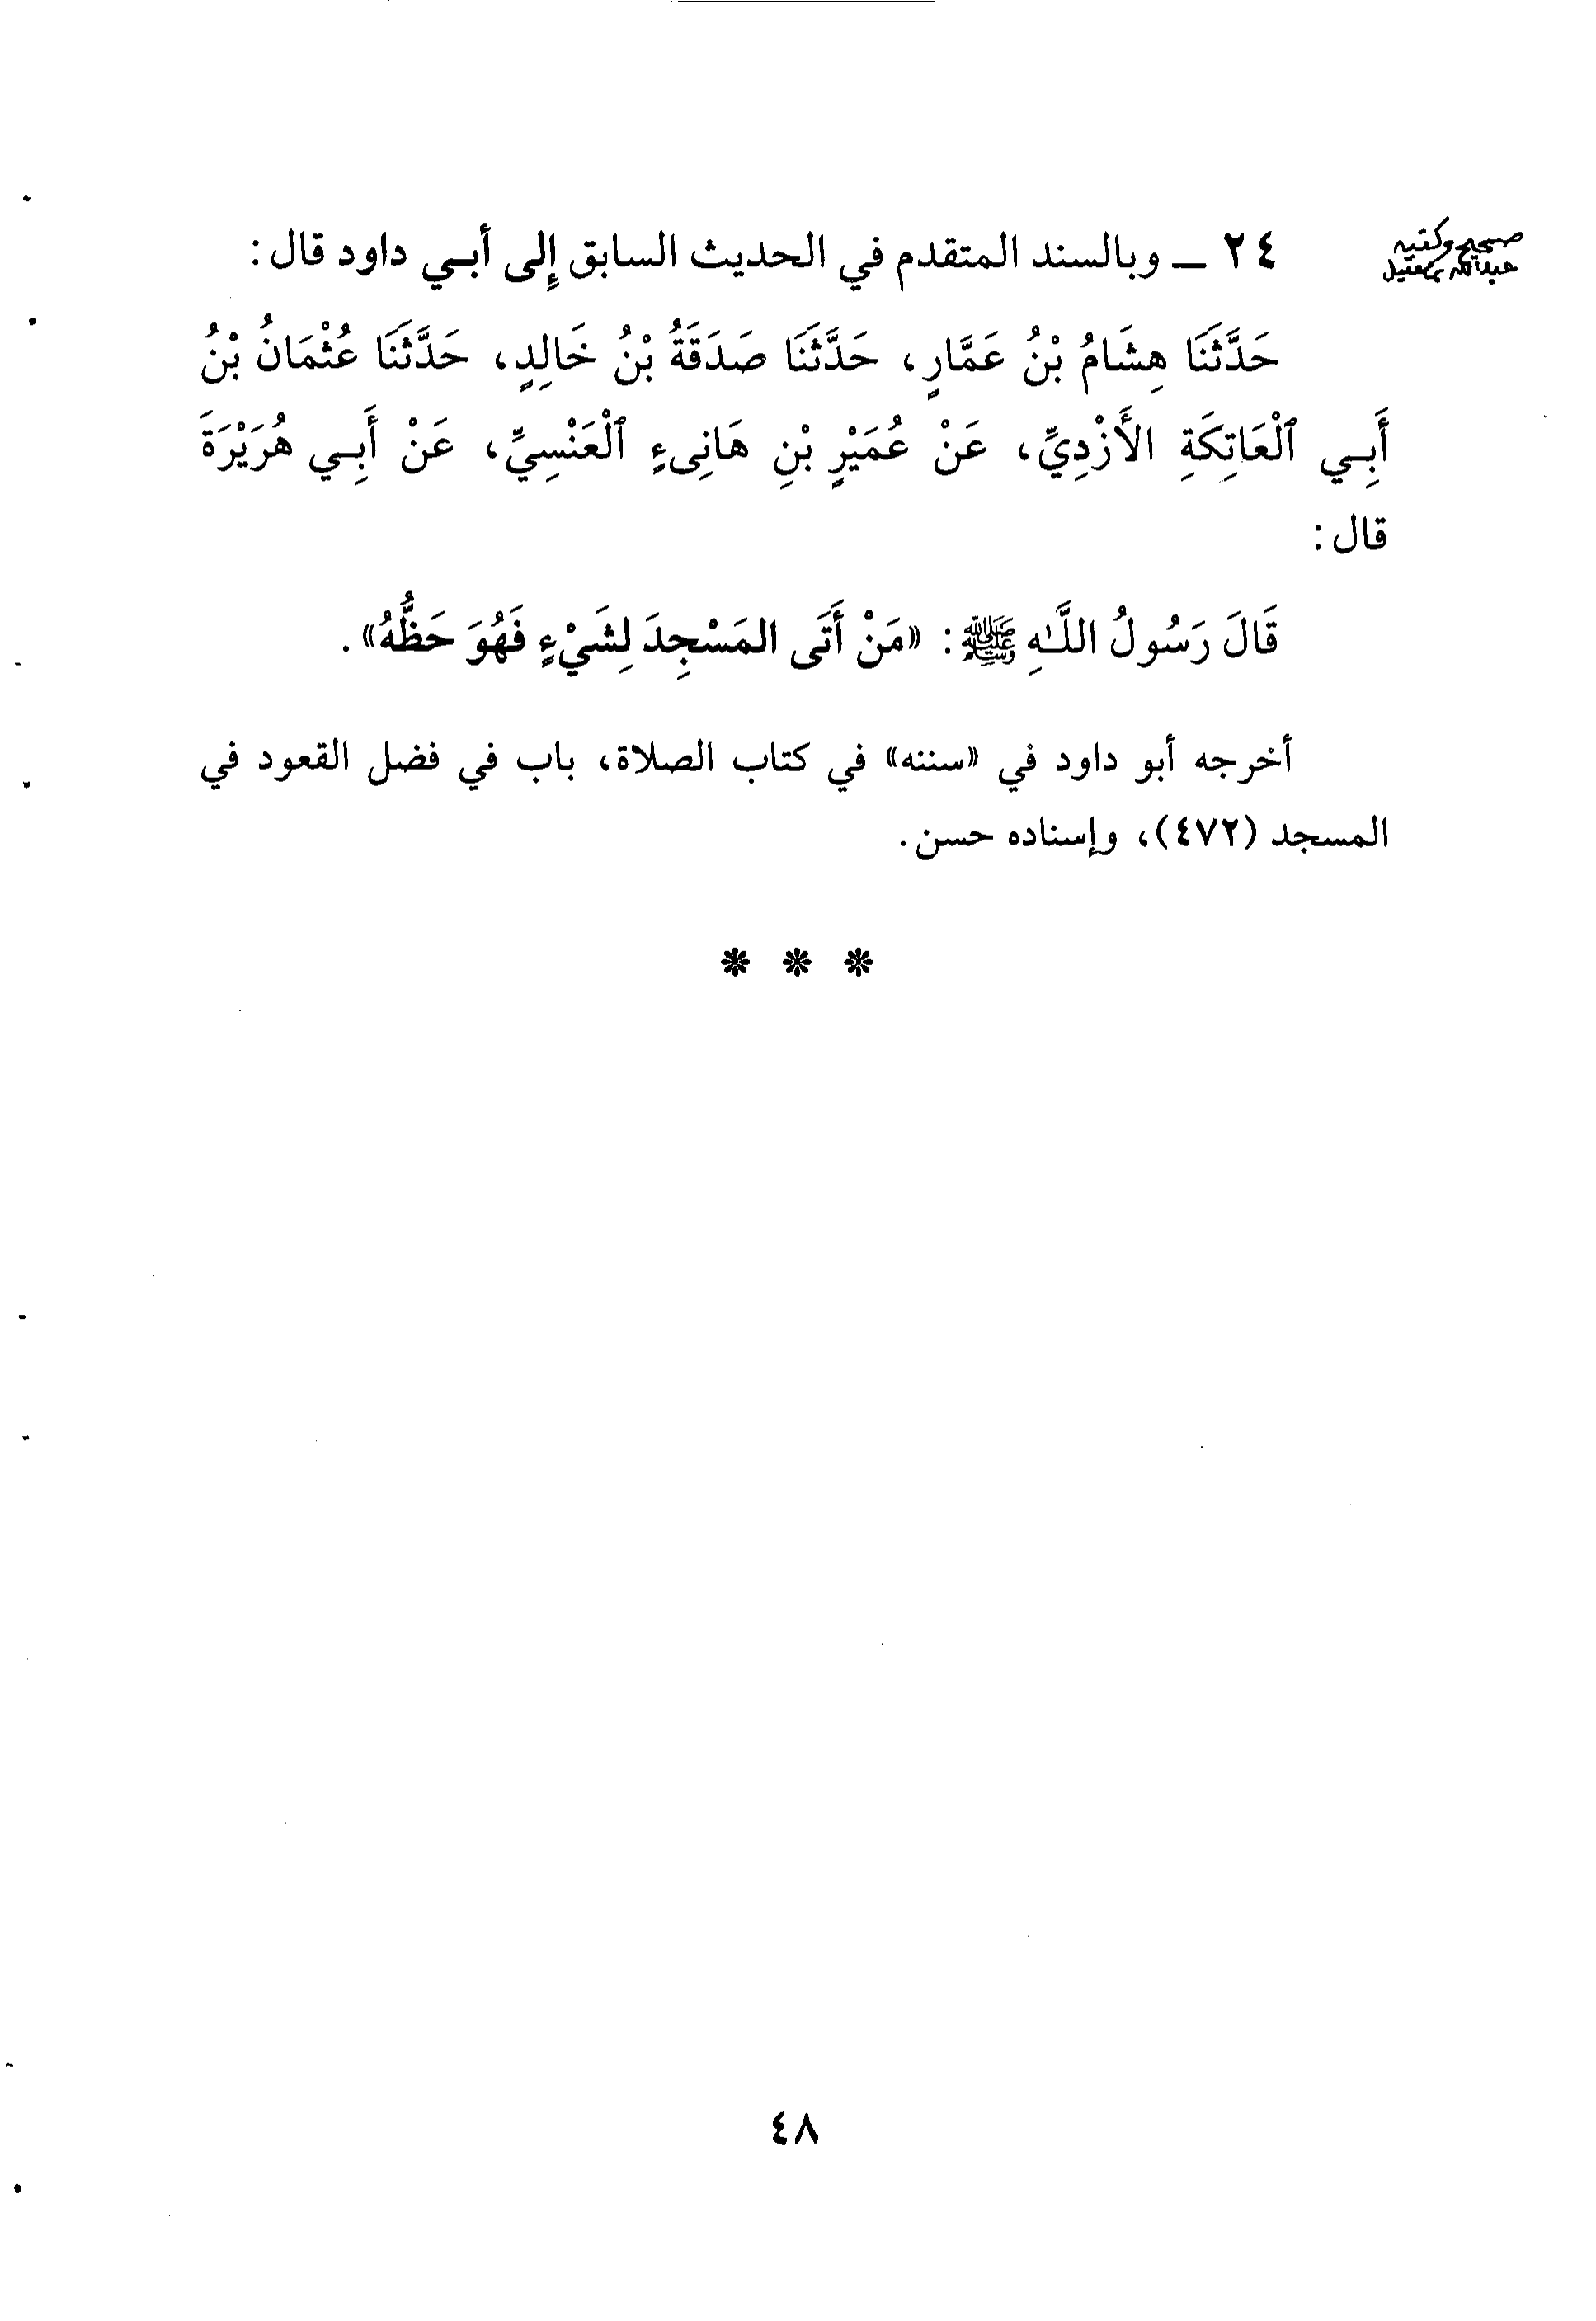 صحيح وكتبه
عبدالله بن عقيل
٢٤ ـ وبالسند المتقدم في الحديث السابق إلى أبي داود قال:
حَدَّثَنَا هِشَامُ بْنُ عَمَّارٍ، حَدَّثَنَا صَدَقَةُ بْنُ خَالِدٍ، حَدَّثَنَا عُثْمَانُ بْنُ
أَبِي ٱلْعَاتِكَةِ الأَزْدِيِّ، عَنْ عُمَيْرِ بْنِ هَانِىءٍ ٱلْعَنْسِيِّ، عَنْ أَبِي هُرَيْرَةَ
قال:
قَالَ رَسُولُ اللَّـٰهِ ﷺ: «مَنْ أَتَى المَسْجِدَ لِشَيْءٍ فَهُوَ حَظُّهُ».
أخرجه أبو داود في «سننه» في كتاب الصلاة، باب في فضل القعود في
المسجد (٤٧٢)، وإسناده حسن.
* * *
٤٨